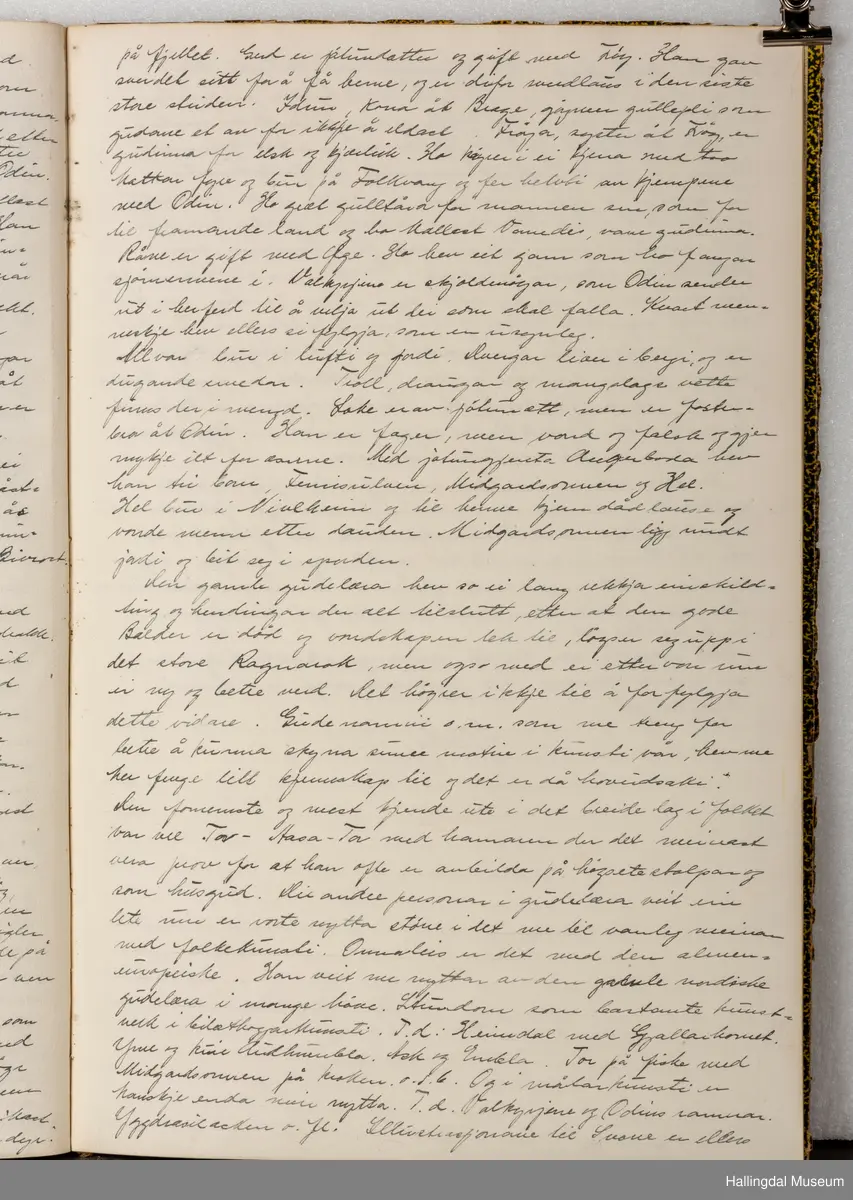 på fjellet. Gerd er jötundatter og gift med Frøy. Han gav
sverdet sitt for å få henne, og er difor verjelaus i den siste
store striden. Idun, kona åt Brage, gøymer gullepli som
gudane et av for ikkje å eldast. Frøja, syster åt Frøy, er
gudinna for elsk og kjærleik. Ho køyrer i ei kjerra med two
kattar fyre og bur på Folkvang og fer helvti av kjempene
med Odin. Ho græt gulltårar for mannen sin, som for
til framande land og ho kallast Vanedis, vane gudinna.
Råne er gift med Øge. Ho hev eit garn som ho fangar
sjömennene i. Valkyrjene er skjoldmöyar, som Odin sender
ut i herferd til å velja ut dei som skal falla. Kvart men-
neskje hev ellers si fylgja, som er usynleg.
Alvar bur i lufti og jordi. Dvergar liver i bergi, og er
dugande smedar. Troll, draugar og mangslags vette
finns der i mengd. Loke er av jötunætt, men er foster-
bror åt Odin. Han er fager, men vond og falsk og gjer
mykje ilt for æsene. Med jotungjenta Angerboda hev
han tri born, Fenrisulven, Midgardsormen og Hel.
Hel bur i Nivlheim og til henne kjem dådlause og
vonde menn etter dauden. Midgardsormen ligg rundt
jordi og bit seg i sporden.
Den gamle gudelæra hev so ei lang rekkja einskild-
ting og hendingar der alt tilslutt, etter at den gode
Balder er död og vondskapen tek til, löyser seg upp i
det store Ragnarok, men også med ei ettervon um
ei ny og betre verd. Det höyrer ikkje til å forfylgja
dette vidare. Gudenamni o.m. som me treng for
betre å kunna skyna sume motiv i kunsti vår, hev me
her fenge litt kjennskap til og det er då hovudsaki.
Den fornemste og mest kjende ute i det breide lag i folket
var vel Tor - Aasa-Tor med hamaren der det meinast
vera prov for at han ofte er avbilda på högsetestolpar og
som husgud. Dei andre personar i gudelæra veit ein
lite um er vorte nytta större i det me til vanleg meinar
med folkekunsti. Onnorleis er det med den ålmen-
europeiske. Han veit me nyttar av den gamle nordiske
gudelæra i mange höve. Stundom som bestemte kunst-
verk i bilæthoggarkunsti. T.d: Heimdal med Gjallarhornet.
Yme og kui Audhumbla. Ask og Embla. Tor på fiske med
Midgardsormen på kroken. o.s.b. Og i målarkunsti er
kanskje enda meir nytta. T.d. Valkyrjene og Odins ramnar.
Yggdrasilasken o. fl. Illustrasjonane til Snorre er ellers
Hallingdal Museum